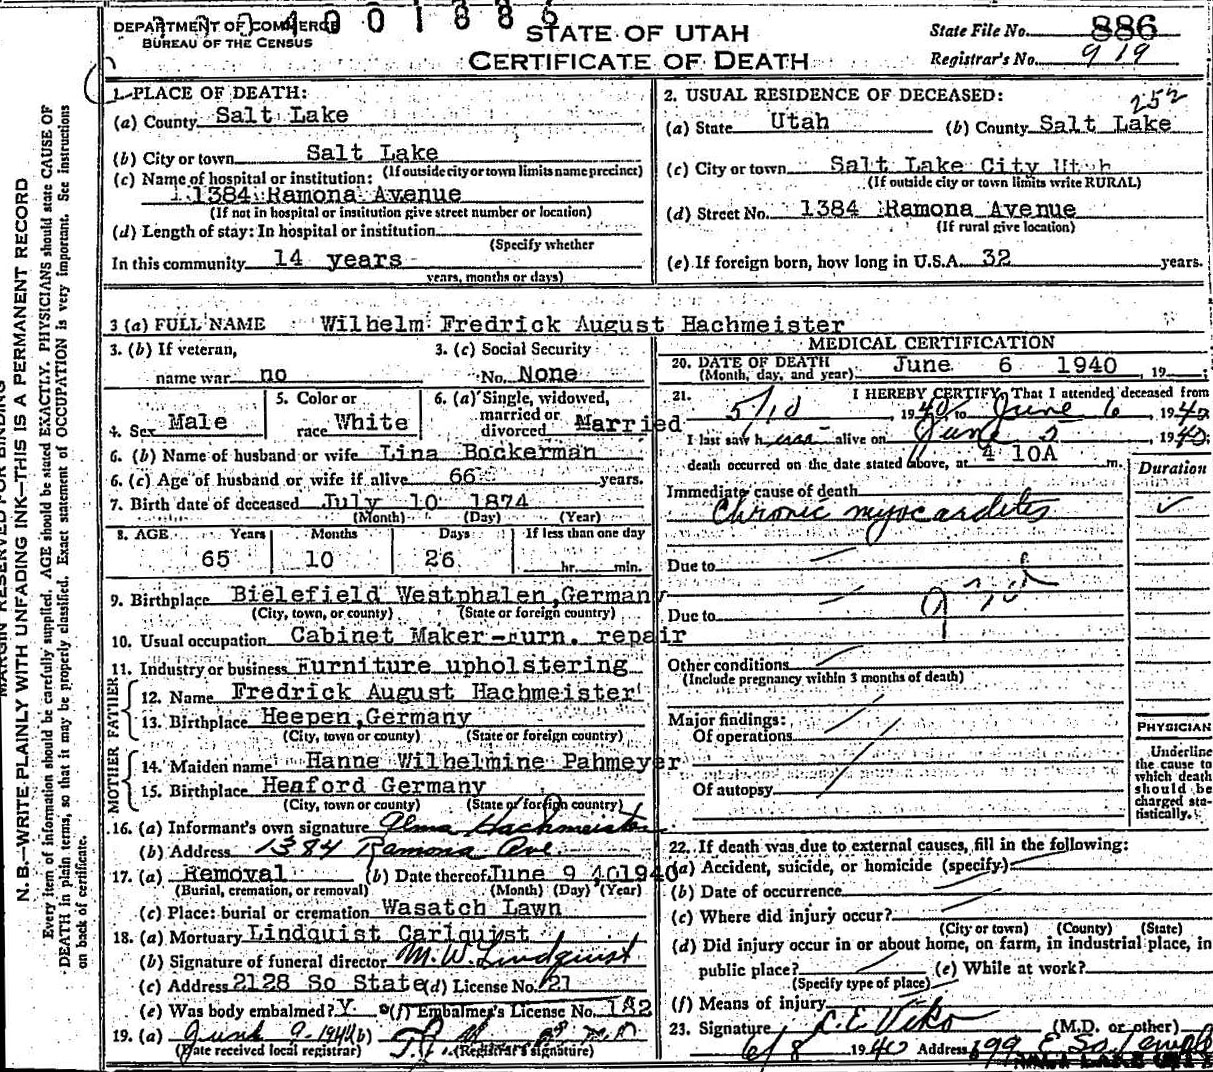 DEPARTMENT OF COMMERCE
BUREAU OF THE CENSUS
STATE OF UTAH
CERTIFICATE OF DEATH
State File No. 886
Registrar's No. 919
MARGIN RESERVED FOR BINDING
N. B.—WRITE PLAINLY WITH UNFADING INK—THIS IS A PERMANENT RECORD
Every item of information should be carefully supplied. AGE should be stated EXACTLY. PHYSICIANS should state CAUSE OF
DEATH in plain terms, so that it may be properly classified. Exact statement of OCCUPATION is very important. See instructions
on back of certificate.
1. PLACE OF DEATH:
(a) County Salt Lake
(b) City or town Salt Lake
(If outside city or town limits name precinct)
(c) Name of hospital or institution:
1384 Ramona Avenue
(If not in hospital or institution give street number or location)
(d) Length of stay: In hospital or institution
(Specify whether
In this community 14 years
years, months or days)
2. USUAL RESIDENCE OF DECEASED: 252
(a) State Utah (b) County Salt Lake
(c) City or town Salt Lake City Utah
(If outside city or town limits write RURAL)
(d) Street No. 1384 Ramona Avenue
(If rural give location)
(e) If foreign born, how long in U.S.A. 32 years.
3 (a) FULL NAME Wilhelm Fredrick August Hachmeister
3. (b) If veteran,
name war no
3. (c) Social Security
No. None
4. Sex Male
5. Color or
race White
6. (a) Single, widowed,
married or
divorced Married
6. (b) Name of husband or wife Lina Bockerman
6. (c) Age of husband or wife if alive 66 years.
7. Birth date of deceased July 10 1874
(Month) (Day) (Year)
8. AGE Years Months Days If less than one day
65 10 26 hr. min.
9. Birthplace Bielefield Westphalen, Germany
(City, town, or county) (State or foreign country)
10. Usual occupation Cabinet Maker-Furn. repair
11. Industry or business Furniture upholstering
FATHER
12. Name Fredrick August Hachmeister
13. Birthplace Heepen, Germany
(City, town or county) (State or foreign country)
MOTHER
14. Maiden name Hanne Wilhelmine Pahmeyer
15. Birthplace Heaford Germany
(City, town or county) (State or foreign country)
16. (a) Informant's own signature Alma Hachmeister
(b) Address 1384 Ramona Ave
17. (a) Removal (b) Date thereof June 9 40 1940
(Burial, cremation, or removal) (Month) (Day) (Year)
(c) Place: burial or cremation Wasatch Lawn
18. (a) Mortuary Lindquist Carlquist
(b) Signature of funeral director M. W. Lindquist
(c) Address 2128 So State (d) License No. 21
(e) Was body embalmed? Y. (f) Embalmer's License No. 182
19. (a) June 9-1940 (b)
(Date received local registrar) (Registrar's signature)
MEDICAL CERTIFICATION
20. DATE OF DEATH June 6 1940, 19
(Month, day, and year)
21. I HEREBY CERTIFY, That I attended deceased from
5/10 1940 to June 6, 1940
I last saw h alive on June 5, 1940;
death occurred on the date stated above, at 4 10A m.
Duration
Immediate cause of death
Chronic myocarditis
Due to
Due to
Other conditions
(Include pregnancy within 3 months of death)
Major findings:
Of operations
Of autopsy
PHYSICIAN
Underline
the cause to
which death
should be
charged sta-
tistically.
22. If death was due to external causes, fill in the following:
(a) Accident, suicide, or homicide (specify)
(b) Date of occurrence
(c) Where did injury occur?
(City or town) (County) (State)
(d) Did injury occur in or about home, on farm, in industrial place, in
public place? (e) While at work?
(Specify type of place)
(f) Means of injury
23. Signature L. E. Viko (M.D. or other)
6/8 1940 Address 699 E So Temple